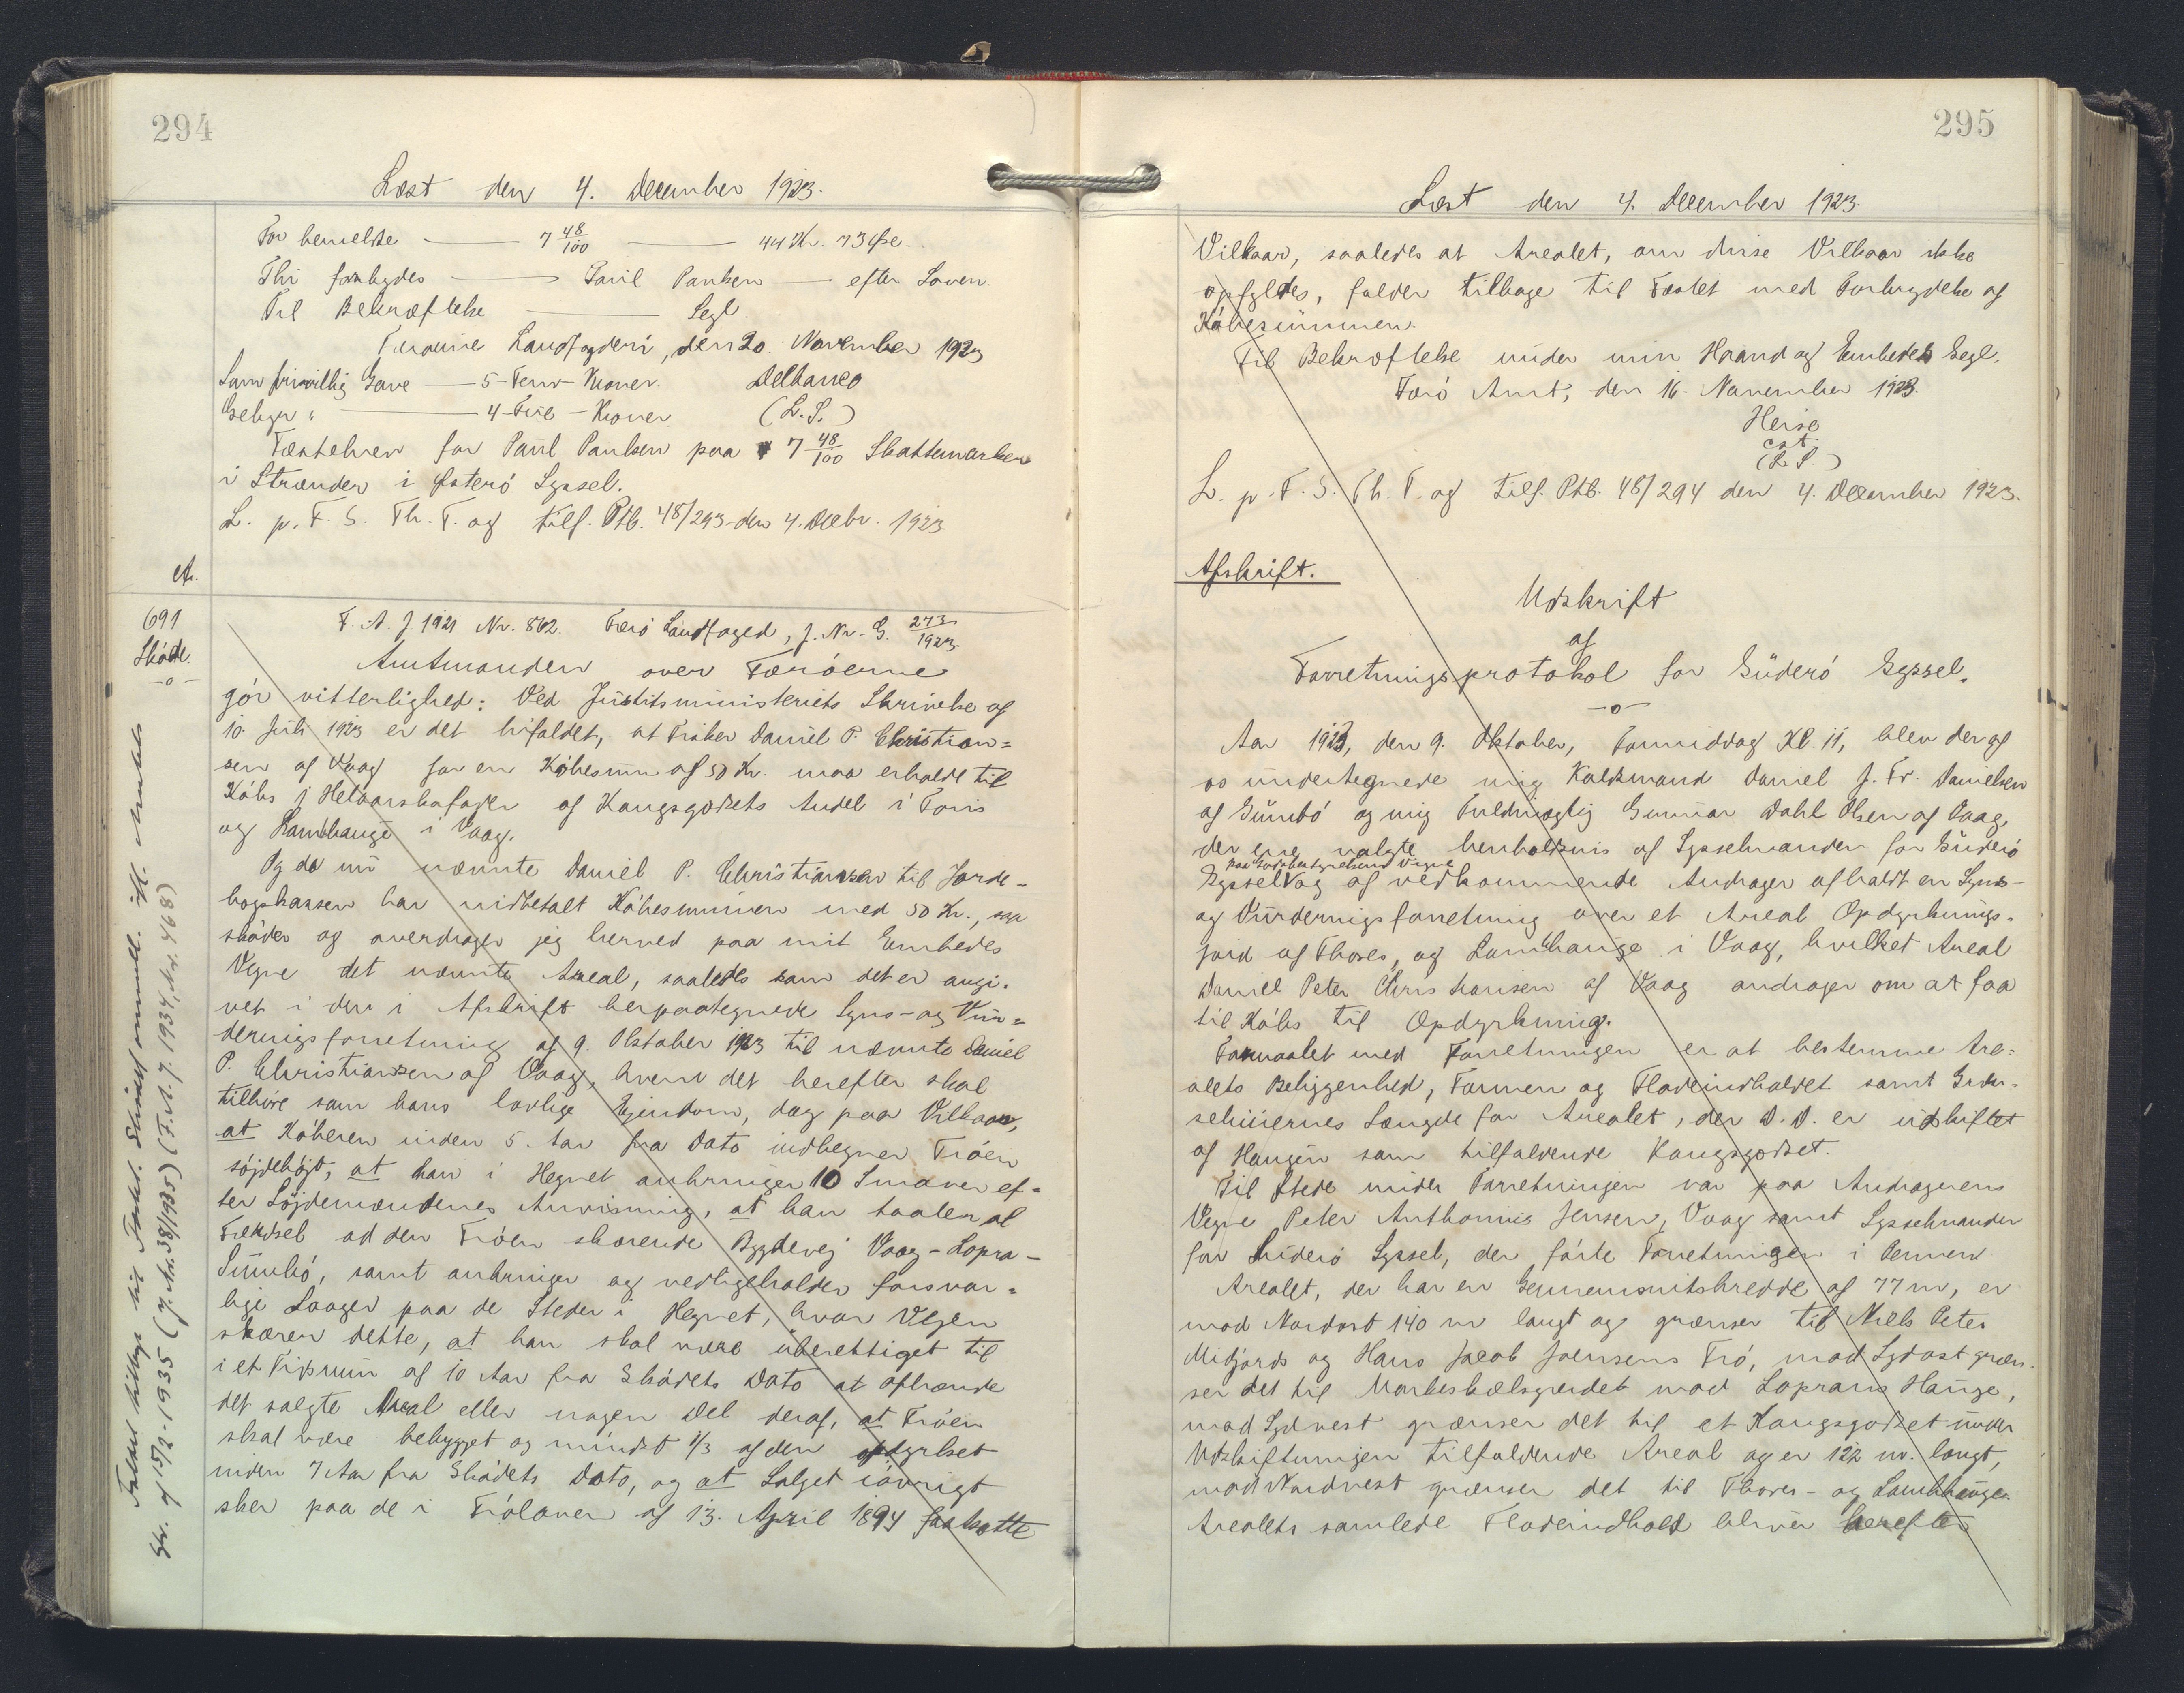 294
Læst den 4. December 1923.
For bemeldte — 7 48/100 — 44 Kr. 73 Øre.
Thi forbydes — Paul Paulsen — efter Loven.
Til Bekræftelse — Segl.
Færøerne Landfogderi, den 20. November 1923
Som frivillig Gave — 5 - Fem - Kroner. Delbanco
Gebyr " — 4 - Fire - Kroner. (L. S.)
Fæstebrev for Paul Paulsen paa 7 48/100 Skattemarker
i Strænder i Østerö Syssel.
L. p. F. S. Th. T. og tilf. Ptb. 48/293 den 4. Decbr. 1923.
A.
691
Skøde.
-o-
F. A. J. 1921 Nr. 862. Færö Landfoged, J. Nr. G. 273/1923.
Amtmanden over Færöerne
gör vitterlighed: Ved Justitsministeriets Skrivelse af
10. Juli 1923 er det bifaldet, at Fisker Daniel P. Christian=
sen af Vaag for en Köbesum af 50 Kr. maa erholde til
Köbs af Kongsgodsets Andel i Toris
og Lambhauge i Vaag.
Og da nu nævnte Daniel P. Christiansen til Jorde-
bogskassen har indbetalt Köbesummen med 50 Kr., saa
sköder og overdrager jeg herved paa mit Embedes
Vegne det nævnte Areal, saaledes som det er angi-
vet i den i Afskrift herpaategnede Syns- og Vur=
deringsforretning af 9. Oktober 1923 til nævnte Daniel
P. Christiansen af Vaag, hvem det herefter skal
tilhöre som hans lovlige Ejendom, dog paa Vilkaar,
at Köberen inden 5. Aar fra Dato indhegner Tröen
söjdehöjt, at han i Hegnet anbringer 10 Smaver ef=
ter Söjdemændenes Anvisning, at han taaler al
Færdsel ad den Tröen skærende Bygdevej Vaag - Lopra -
Sumbö, samt anbringer og vedligeholder forsvar=
lige Laager paa de Steder i Hegnet, hvor Vejen
skærer dette, at han skal være uberettiget til
i et Tidsrum af 10 Aar fra Sködets Dato at afhænde
det solgte Areal eller nogen Del deraf, at Tröen
skal være bebygget og mindst 1/3 af den opdyrket
inden 7 Aar fra Sködets Dato, og at Salget iövrigt
sker paa de i Tröloven af 13. April 1894 fastsatte
Faldet tilbage til Fæstet. Skødet annull.
Skr. af 15/2-1935 (J. Nr. 38/1935) (F.A.J. 1934, Nr. 468)
295
Læst den 4. December 1923.
Vilkaar, saaledes at Arealet, om disse Vilkaar ikke
opfyldes, falder tilbage til Fæstet med Fortabelse af
Köbesummen.
Til Bekræftelse under min Haand og Embedets Segl.
Færö Amt, den 16. November 1923.
Heise
cst.
(L. S.)
L. p. F. S. Th. T. og tilf. Ptb. 48/294 den 4. December 1923.
Afskrift.
Udskrift
af
Forretningsprotokol for Süderö Syssel.
-o-
Aar 1923, den 9. Oktober, Formiddag Kl. 11, blev der af
os undertegnede mig Kaldsmand Daniel J. Fr. Danielsen
af Sumbö og mig Fuldmægtig Gunnar Dahl Olsen af Vaag,
der ere valgte henholdsvis af Sysselmanden for Süderö
paa Godsbestyrelsens Vegne
Syssel og af vedkommende Andrager afholdt en Syns-
og Vurderingsforretning over et Areal Opdyrknings-
jord af Thores, og Lambhauge i Vaag, hvilket Areal
Daniel Peter Christiansen af Vaag andrager om at faa
til Köbs til Opdyrkning.
Formaalet med Forretningen er at bestemme Are=
alets Beliggenhed, Formen og Fladeindholdet samt Græn-
selinjernes Længde for Arealet, der D. D. er udskiftet
af Haugen som tilfaldende Kongsgodset.
Til Stede under Forretningen var paa Andragerens
Vegne Peter Anthonius Jensen, Vaag samt Sysselmanden
for Süderö Syssel, der förte Forretningen i Pennen
Arealet, der har en Gennemsnitsbredde af 77 m, er
mod Nordost 140 m langt og grænser til Niels Peter
Midjords og Hans Jacob Joensens Trö, mod Sydost græn-
ser det til Markeskelsgærdet mod Loprans Hauge,
mod Sydvest grænser det til et Kongsgodset under
Udskiftningen tilfaldende Areal og er 122 m. langt,
mod Nordvest grænser det til Thores- og Lambhauge.
Arealets samlede Fladeindhold bliver herefter